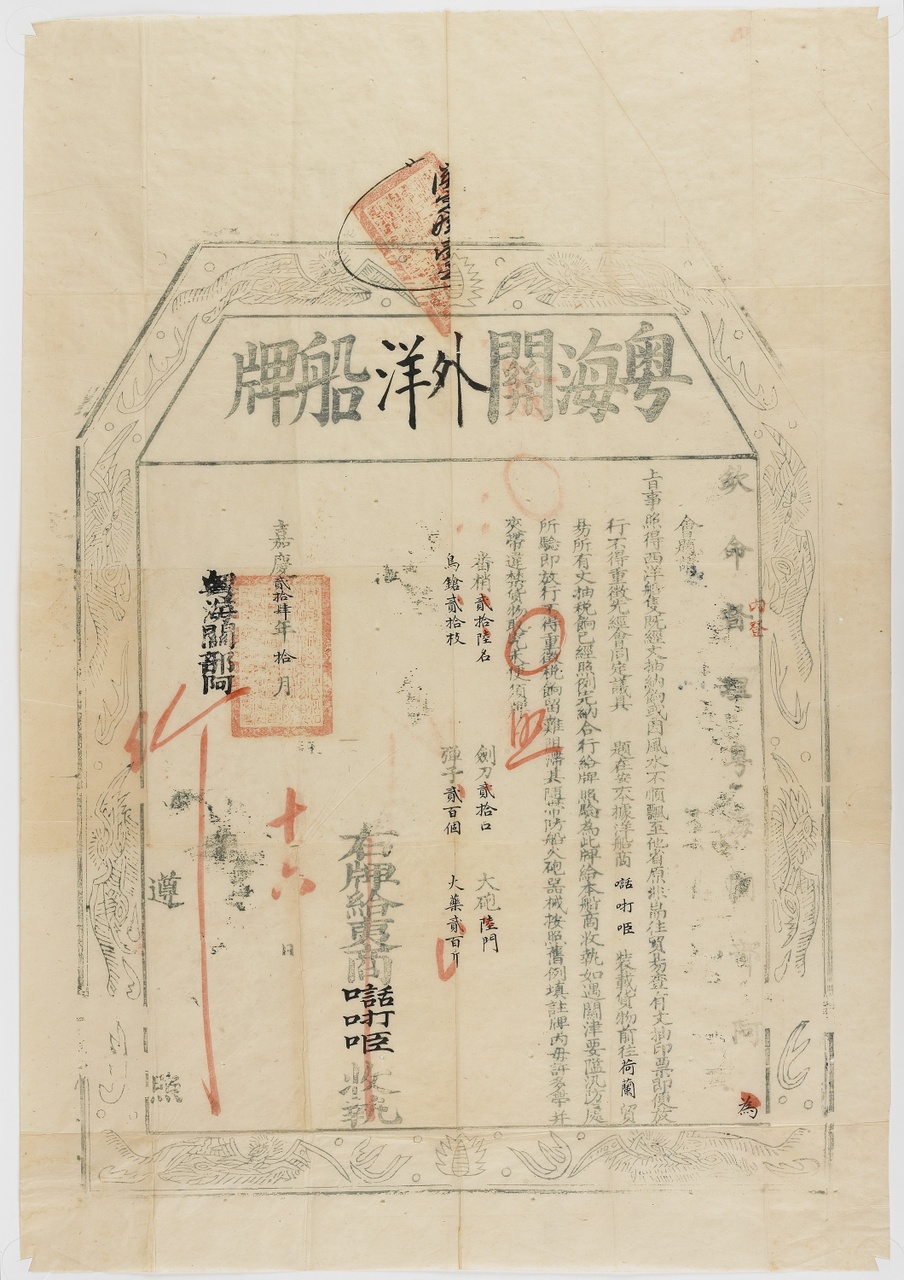 粵海關外洋船牌
欽命督理粵海關部阿 為
會題請
旨事照得西洋船隻既經丈抽納餉或因風水不順飄至他省原非常往貿易查有丈抽印票即便放
行不得重徵先經會同定議具 題在案本據洋船商 𠵽𠮩㖏 裝載貨物前往荷蘭貿
易所有丈抽稅餉已經照例完納合行給牌照驗為此牌給本船商收執如遇關津要隘汛防處
所驗即放行不得重徵稅餉留難阻滯其隨帶防船火砲器械按照舊例填註牌內毋許多帶并
夾帶違禁貨物取究未便須牌
番梢貳拾陸名 劍刀貳拾口 大砲陸門
鳥鎗貳拾枝 彈子貳百個 火藥貳百斤
右牌給夷商 收執
嘉慶貳拾肆年拾月 十六 日
粵海關部阿
遵照